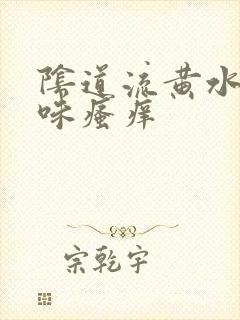 陰道流黄水
味瘙痒
宗乾宇